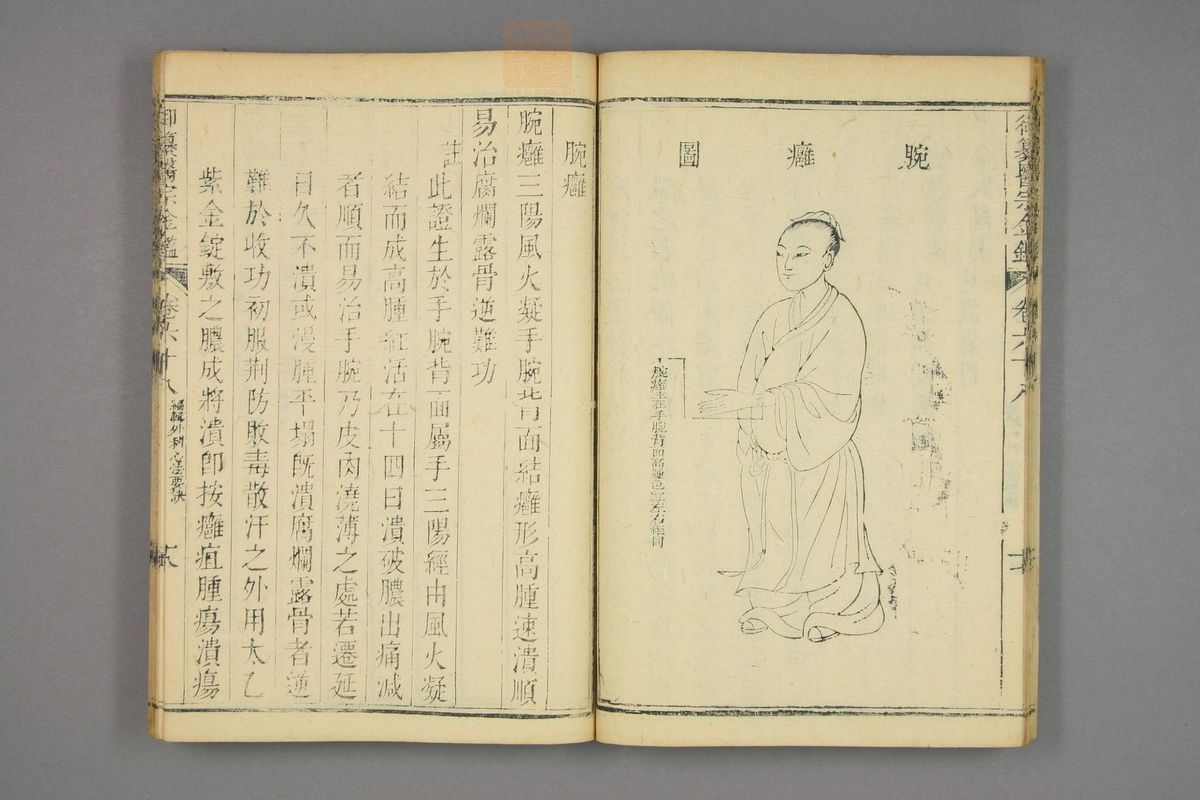 御纂醫宗金鑑
卷六十八
腕癰圖
腕癰生在手腕背面高腫色紅左右相同
腕癰
腕癰三陽風火凝手腕背面結癰形高腫速潰順
易治腐爛露骨逆難功
註此證生於手腕背面屬手三陽經由風火凝
結而成高腫紅活在十四日潰破膿出痛減
者順而易治手腕乃皮肉澆薄之處若遷延
日久不潰或漫腫平塌旣潰腐爛露骨者逆
難於收功初服荆防敗毒散汗之外用太乙
紫金錠敷之膿成將潰卽按癰疽腫瘍潰瘍
御纂醫宗金鑑
卷六十八
編輯外科心法要訣